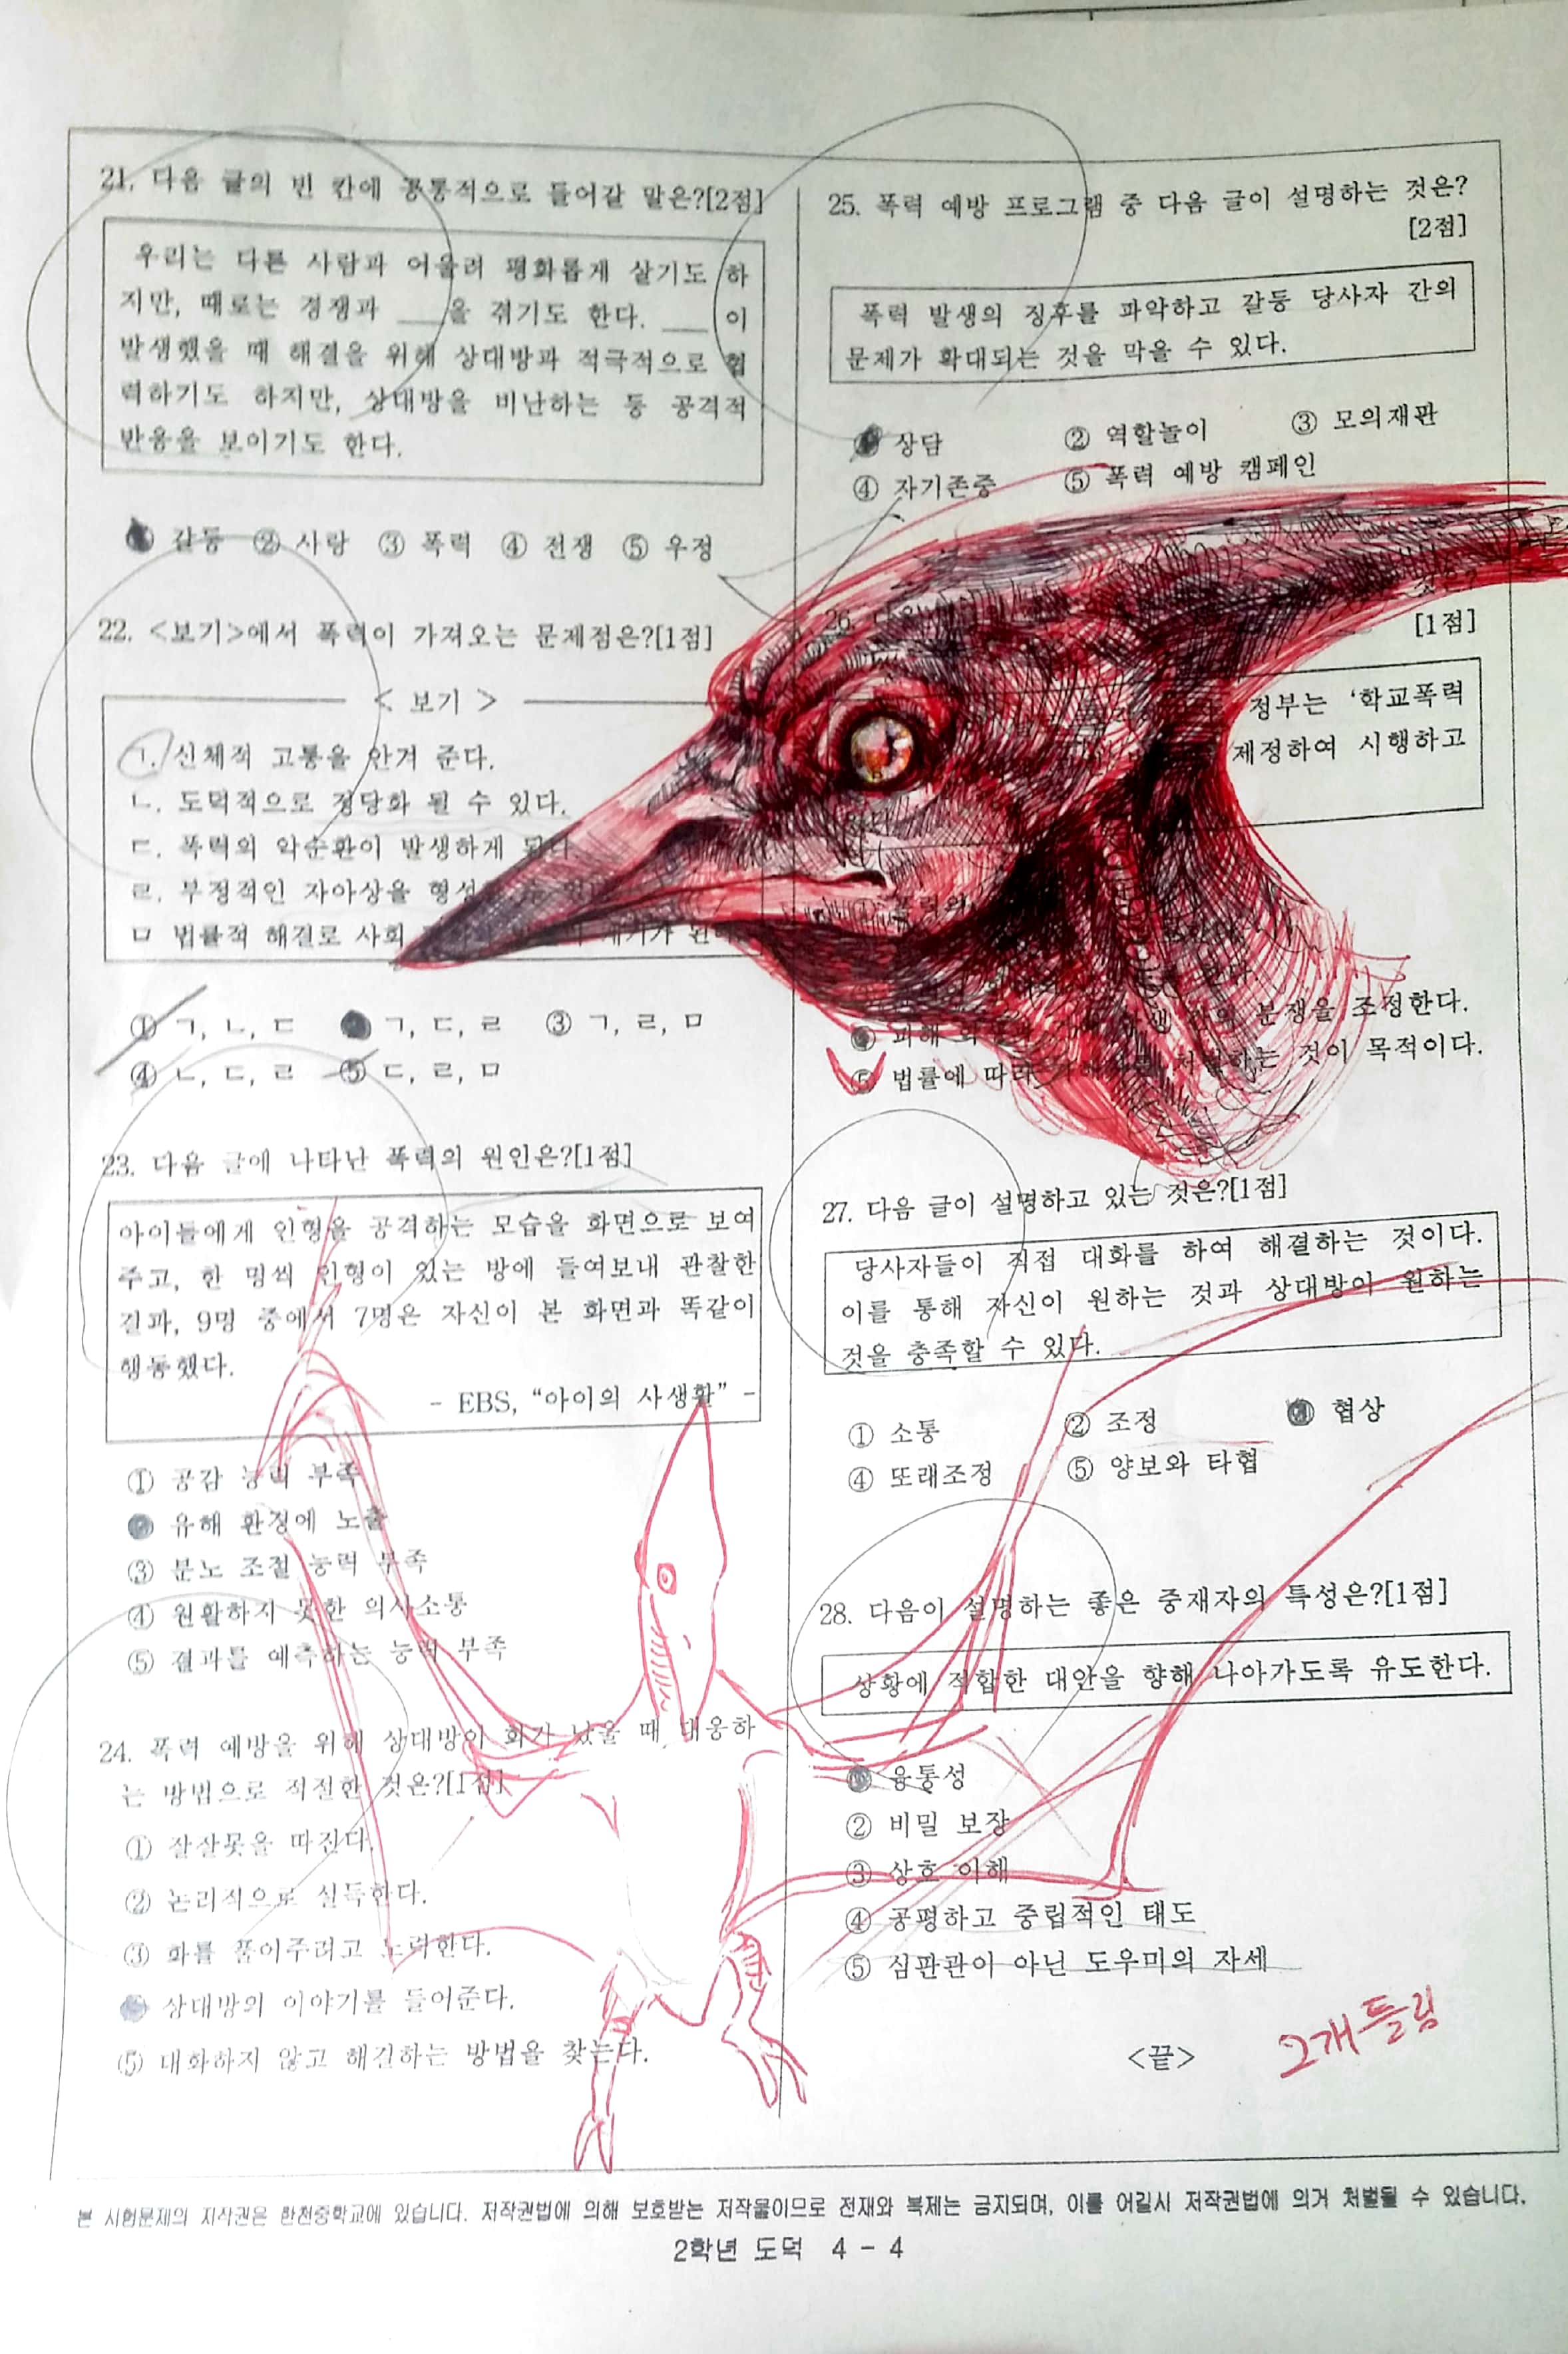 21. 다음 글의 빈 칸에 공통적으로 들어갈 말은?[2점]
우리는 다른 사람과 어울려 평화롭게 살기도 하
지만, 때로는 경쟁과 ___을 겪기도 한다. ___ 이
발생했을 때 해결을 위해 상대방과 적극적으로 협
력하기도 하지만, 상대방을 비난하는 등 공격적
반응을 보이기도 한다.
갈등 ② 사랑 ③ 폭력 ④ 전쟁 ⑤ 우정
22. <보기>에서 폭력이 가져오는 문제점은?[1점]
< 보기 >
ㄱ. 신체적 고통을 안겨 준다.
ㄴ. 도덕적으로 정당화 될 수 있다.
ㄷ. 폭력의 악순환이 발생하게 된다
ㄹ. 부정적인 자아상을 형성
ㅁ 법률적 해결로 사회
① ㄱ, ㄴ, ㄷ ㄱ, ㄷ, ㄹ ③ ㄱ, ㄹ, ㅁ
④ ㄴ, ㄷ, ㄹ ⑤ ㄷ, ㄹ, ㅁ
23. 다음 글에 나타난 폭력의 원인은?[1점]
아이들에게 인형을 공격하는 모습을 화면으로 보여
주고, 한 명씩 인형이 있는 방에 들여보내 관찰한
결과, 9명 중에서 7명은 자신이 본 화면과 똑같이
행동했다.
- EBS, “아이의 사생활” -
① 공감 능력 부족
유해 환경에 노출
③ 분노 조절 능력 부족
④ 원활하지 못한 의사소통
⑤ 결과를 예측하는 능력 부족
24. 폭력 예방을 위해 상대방이 화가 났을 때 대응하
는 방법으로 적절한 것은?[1점]
① 잘잘못을 따진다.
② 논리적으로 설득한다.
③ 화를 풀어주려고 노력한다.
상대방의 이야기를 들어준다.
⑤ 대화하지 않고 해결하는 방법을 찾는다.
25. 폭력 예방 프로그램 중 다음 글이 설명하는 것은?
[2점]
폭력 발생의 징후를 파악하고 갈등 당사자 간의
문제가 확대되는 것을 막을 수 있다.
상담 ② 역할놀이 ③ 모의재판
④ 자기존중 ⑤ 폭력 예방 캠페인
26. 것은?
[1점]
정부는 ‘학교폭력
제정하여 시행하고
폭력의
피해 분쟁을 조정한다.
⑤ 법률에 따라 것이 목적이다.
27. 다음 글이 설명하고 있는 것은?[1점]
당사자들이 직접 대화를 하여 해결하는 것이다.
이를 통해 자신이 원하는 것과 상대방이 원하는
것을 충족할 수 있다.
① 소통 ② 조정 협상
④ 또래조정 ⑤ 양보와 타협
28. 다음이 설명하는 좋은 중재자의 특성은?[1점]
상황에 적합한 대안을 향해 나아가도록 유도한다.
융통성
② 비밀 보장
③ 상호 이해
④ 공평하고 중립적인 태도
⑤ 심판관이 아닌 도우미의 자세
<끝>
2개 틀림
본 시험문제의 저작권은 한천중학교에 있습니다. 저작권법에 의해 보호받는 저작물이므로 전재와 복제는 금지되며, 이를 어길시 저작권법에 의거 처벌될 수 있습니다.
2학년 도덕 4 - 4